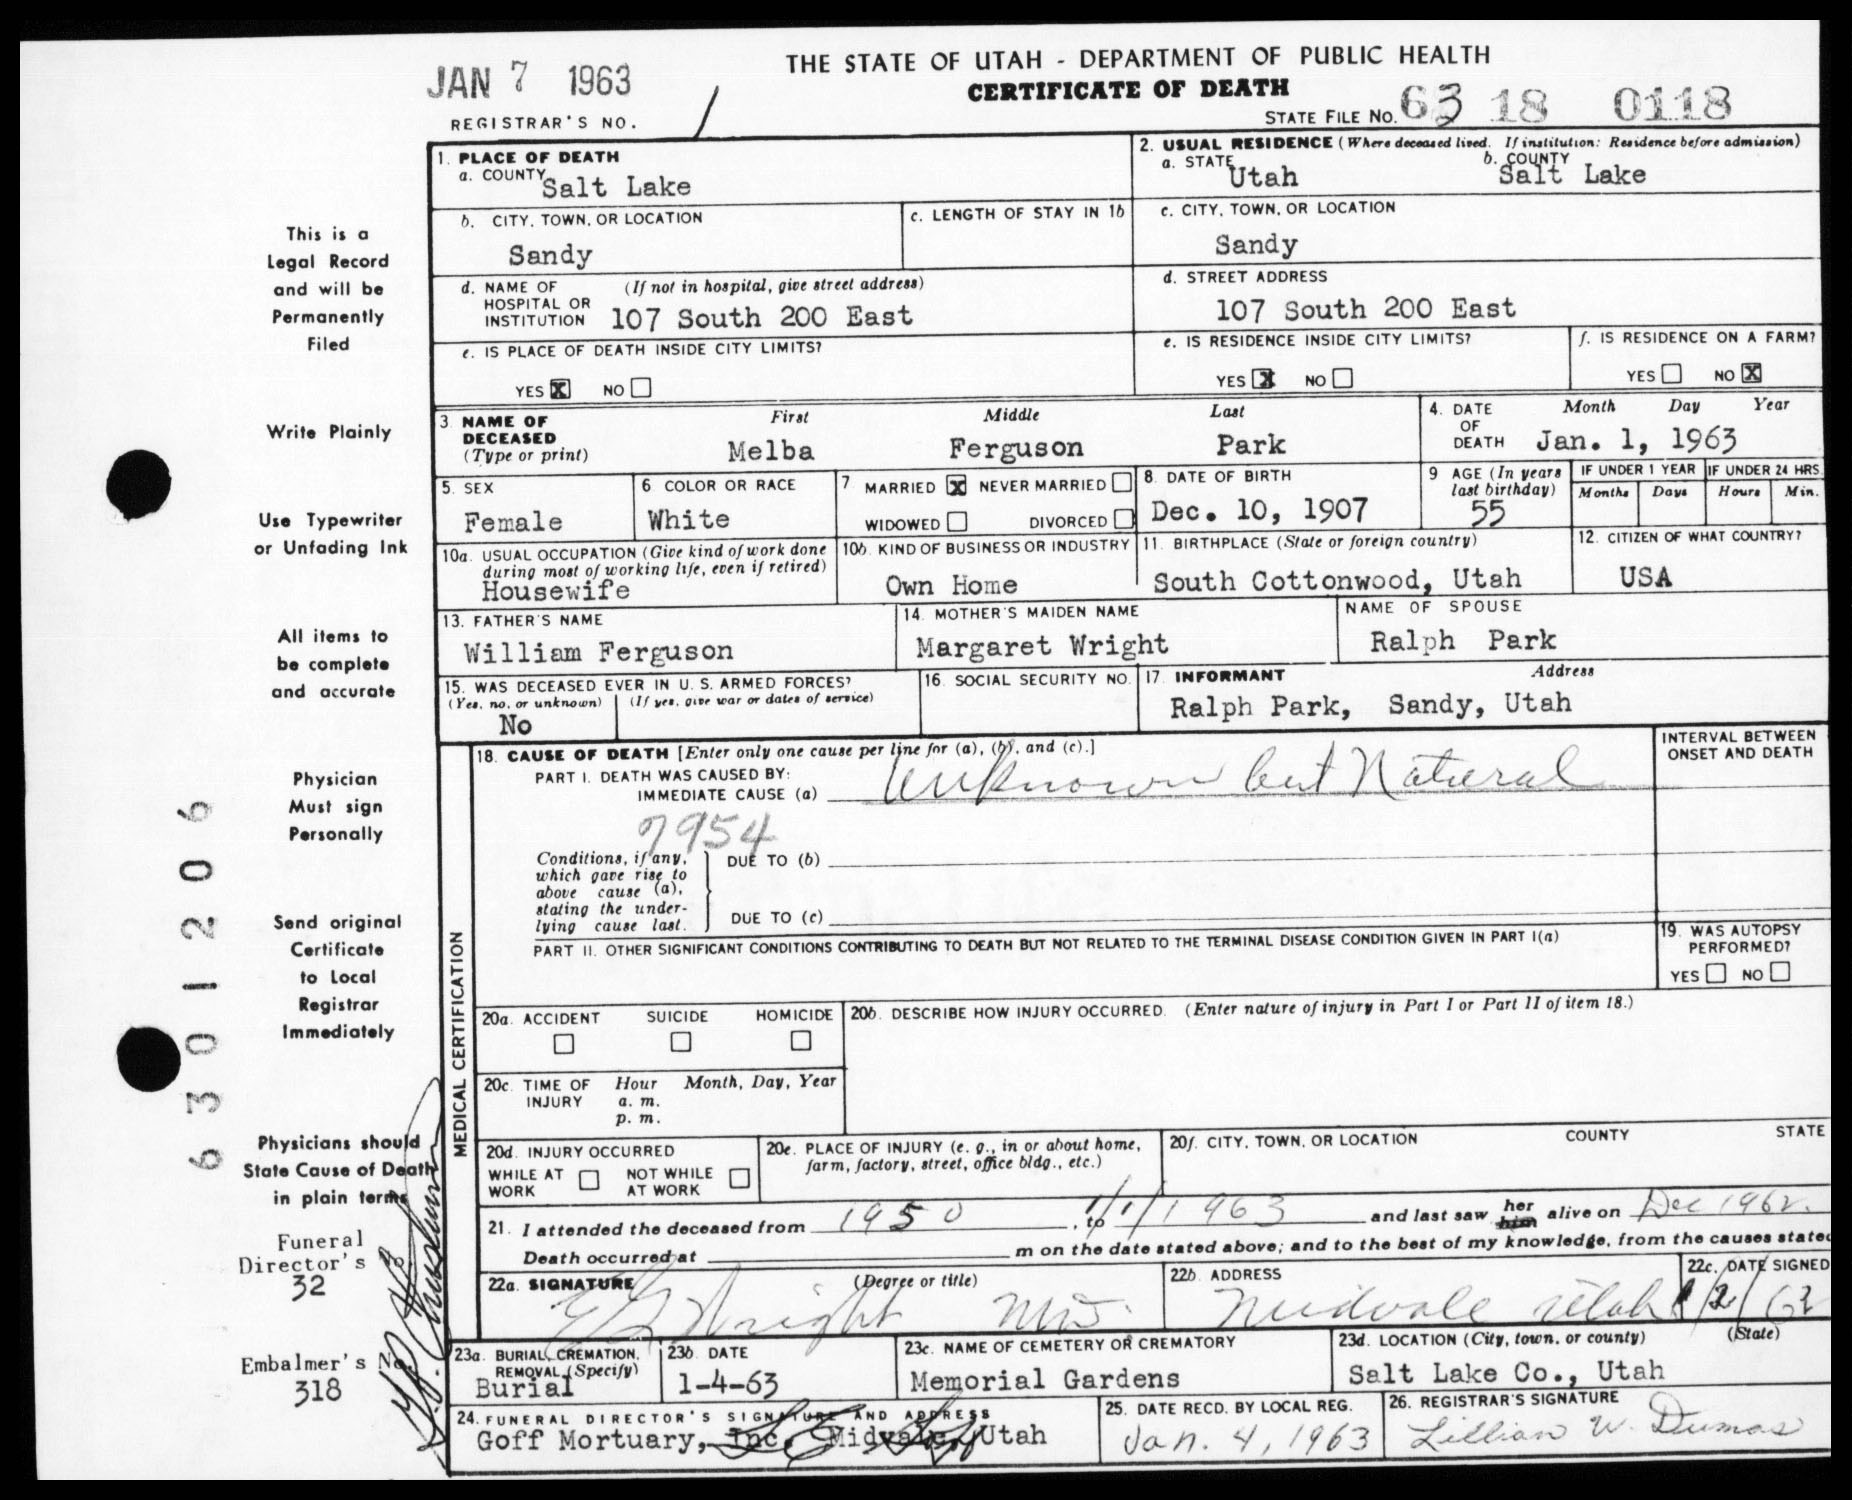 THE STATE OF UTAH - DEPARTMENT OF PUBLIC HEALTH
JAN 7 1963
CERTIFICATE OF DEATH
REGISTRAR'S NO. 1
STATE FILE NO. 63 18 0118
1. PLACE OF DEATH
a. COUNTY Salt Lake
2. USUAL RESIDENCE (Where deceased lived. If institution: Residence before admission)
a. STATE Utah b. COUNTY Salt Lake
b. CITY, TOWN, OR LOCATION Sandy
c. LENGTH OF STAY IN 1b
c. CITY, TOWN, OR LOCATION Sandy
d. NAME OF HOSPITAL OR INSTITUTION (If not in hospital, give street address) 107 South 200 East
d. STREET ADDRESS 107 South 200 East
e. IS PLACE OF DEATH INSIDE CITY LIMITS?
YES X NO
e. IS RESIDENCE INSIDE CITY LIMITS?
YES X NO
f. IS RESIDENCE ON A FARM?
YES NO X
3. NAME OF DECEASED (Type or print)
First Middle Last
Melba Ferguson Park
4. DATE OF DEATH Month Day Year
Jan. 1, 1963
5. SEX Female
6. COLOR OR RACE White
7. MARRIED X NEVER MARRIED
WIDOWED DIVORCED
8. DATE OF BIRTH Dec. 10, 1907
9 AGE (In years last birthday) 55
IF UNDER 1 YEAR Months Days
IF UNDER 24 HRS. Hours Min.
10a. USUAL OCCUPATION (Give kind of work done during most of working life, even if retired)
Housewife
10b. KIND OF BUSINESS OR INDUSTRY
Own Home
11. BIRTHPLACE (State or foreign country)
South Cottonwood, Utah
12. CITIZEN OF WHAT COUNTRY?
USA
13. FATHER'S NAME
William Ferguson
14. MOTHER'S MAIDEN NAME
Margaret Wright
NAME OF SPOUSE
Ralph Park
15. WAS DECEASED EVER IN U. S. ARMED FORCES?
(Yes, no, or unknown) (If yes, give war or dates of service)
No
16. SOCIAL SECURITY NO.
17. INFORMANT Address
Ralph Park, Sandy, Utah
18. CAUSE OF DEATH [Enter only one cause per line for (a), (b), and (c).]
PART I. DEATH WAS CAUSED BY:
IMMEDIATE CAUSE (a) Unknown but Natural
INTERVAL BETWEEN ONSET AND DEATH
7954
Conditions, if any, which gave rise to above cause (a), stating the underlying cause last.
DUE TO (b)
DUE TO (c)
PART II. OTHER SIGNIFICANT CONDITIONS CONTRIBUTING TO DEATH BUT NOT RELATED TO THE TERMINAL DISEASE CONDITION GIVEN IN PART I(a)
19. WAS AUTOPSY PERFORMED?
YES NO
MEDICAL CERTIFICATION
20a. ACCIDENT SUICIDE HOMICIDE
20b. DESCRIBE HOW INJURY OCCURRED. (Enter nature of injury in Part I or Part II of item 18.)
20c. TIME OF INJURY Hour Month, Day, Year
a. m.
p. m.
20d. INJURY OCCURRED
WHILE AT WORK NOT WHILE AT WORK
20e. PLACE OF INJURY (e. g., in or about home, farm, factory, street, office bldg., etc.)
20f. CITY, TOWN, OR LOCATION COUNTY STATE
21. I attended the deceased from 1950, to 1/1/1963 and last saw her him alive on Dec 1962.
Death occurred at m on the date stated above; and to the best of my knowledge, from the causes stated
22a. SIGNATURE (Degree or title)
E G Wright MD.
22b. ADDRESS
Midvale Utah
22c. DATE SIGNED
1/2/63
23a. BURIAL, CREMATION, REMOVAL (Specify)
Burial
23b. DATE
1-4-63
23c. NAME OF CEMETERY OR CREMATORY
Memorial Gardens
23d. LOCATION (City, town, or county) (State)
Salt Lake Co., Utah
24. FUNERAL DIRECTOR'S SIGNATURE AND ADDRESS
Goff Mortuary, Inc. Midvale, Utah
25. DATE RECD. BY LOCAL REG.
Jan. 4, 1963
26. REGISTRAR'S SIGNATURE
Lillian W. Dumas
This is a
Legal Record
and will be
Permanently
Filed
Write Plainly
Use Typewriter
or Unfading Ink
All items to
be complete
and accurate
Physician
Must sign
Personally
Send original
Certificate
to Local
Registrar
Immediately
Physicians should
State Cause of Death
in plain terms
Funeral
Director's No
32
Embalmer's No.
318
6301206